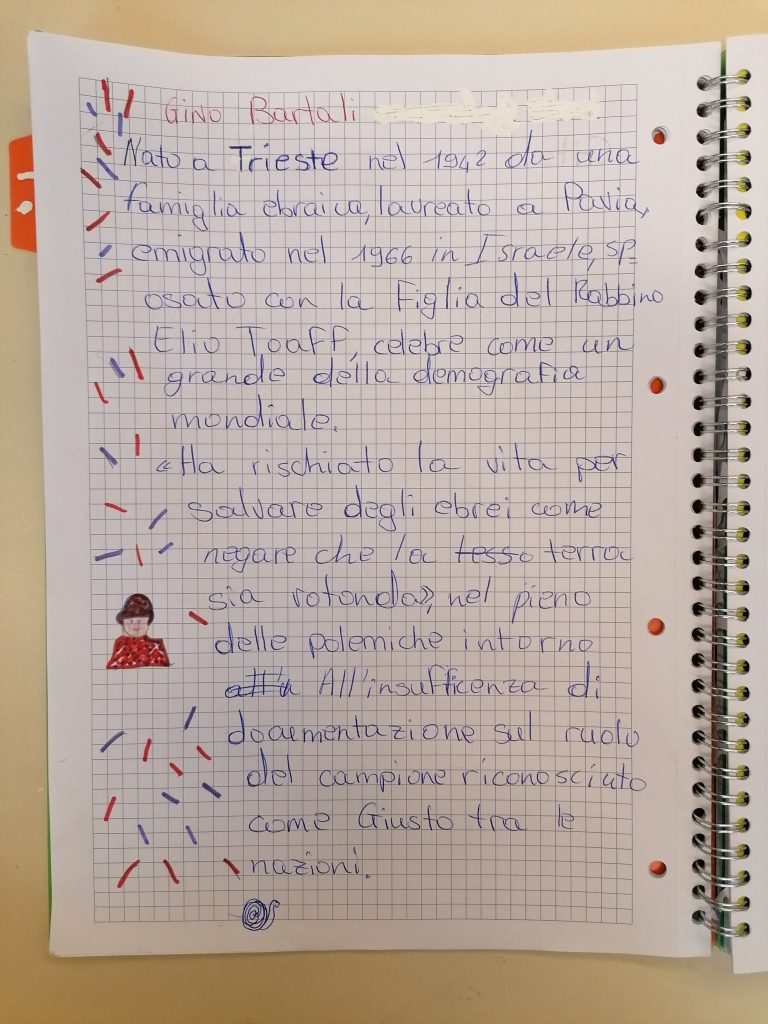 Gino Bartali
Nato a Trieste nel 1942 da una
famiglia ebraica, laureato a Pavia,
emigrato nel 1966 in Israele, sp-
osato con la Figlia del Rabbino
Elio Toaff, celebre come un
grande della demografia
mondiale.
«Ha rischiato la vita per
salvare degli ebrei come
negare che la tesso terra
sia rotonda», nel pieno
delle polemiche intorno
All'insufficenza di
documentazione sul ruolo
del campione riconosciuto
come Giusto tra le
nazioni.